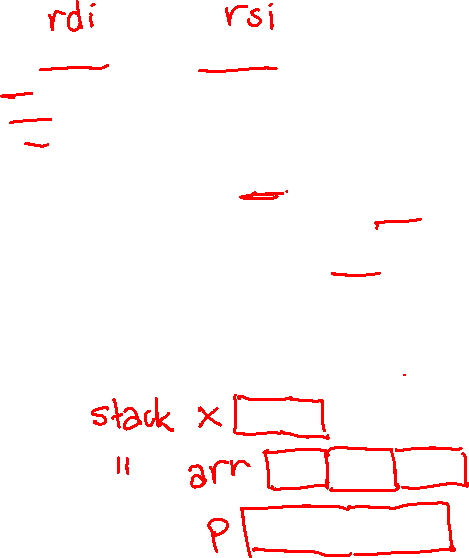 rdi rsi
stack x
" arr
p